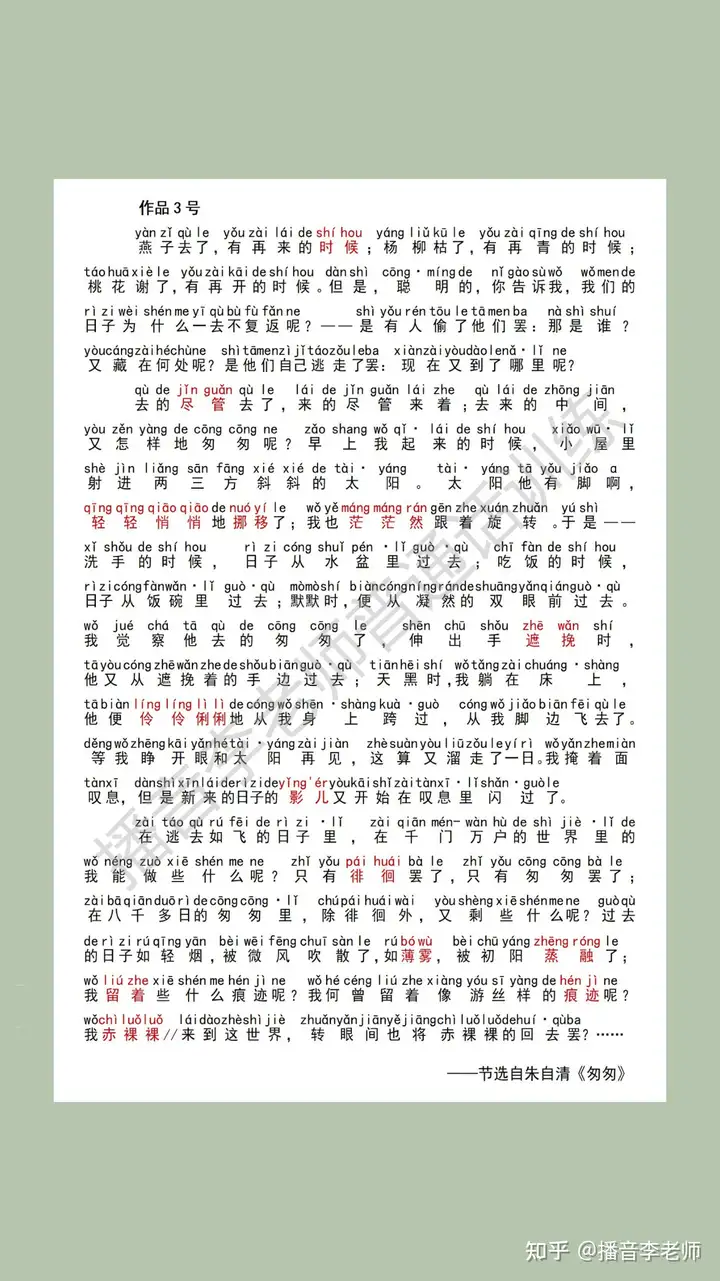 作品3号
yàn zǐ qù le yǒu zài lái de shí hou yáng liǔ kū le yǒu zài qīng de shí hou
燕子去了,有再来的时候;杨柳枯了,有再青的时候;
táo huā xiè le yǒu zài kāi de shí hou dàn shì cōng·míng de nǐ gào sù wǒ wǒ men de
桃花谢了,有再开的时候。但是,聪明的,你告诉我,我们的
rì zi wèi shén me yī qù bù fù fǎn ne shì yǒu rén tōu le tā men ba nà shì shuí
日子为什么一去不复返呢?——是有人偷了他们罢:那是谁?
yòu cáng zài hé chù ne shì tā men zì jǐ táo zǒu le ba xiàn zài yòu dào le nǎ·lǐ ne
又藏在何处呢?是他们自己逃走了罢:现在又到了哪里呢?
qù de jǐn guǎn qù le lái de jǐn guǎn lái zhe qù lái de zhōng jiān
去的尽管去了,来的尽管来着;去来的中间,
yòu zěn yàng de cōng cōng ne zǎo shang wǒ qǐ·lái de shí hou xiǎo wū·lǐ
又怎样地匆匆呢?早上我起来的时候,小屋里
shè jìn liǎng sān fāng xié xié de tài·yáng tài·yáng tā yǒu jiǎo a
射进两三方斜斜的太阳。太阳他有脚啊,
qīng qīng qiāo qiāo de nuó yí le wǒ yě máng máng rán gēn zhe xuán zhuǎn yú shì
轻轻悄悄地挪移了;我也茫茫然跟着旋转。于是——
xǐ shǒu de shí hou rì zi cóng shuǐ pén·lǐ guò·qù chī fàn de shí hou
洗手的时候,日子从水盆里过去;吃饭的时候,
rì zi cóng fàn wǎn·lǐ guò·qù mò mò shí biàn cóng níng rán de shuāng yǎn qián guò·qù
日子从饭碗里过去;默默时,便从凝然的双眼前过去。
wǒ jué chá tā qù de cōng cōng le shēn chū shǒu zhē wǎn shí
我觉察他去的匆匆了,伸出手遮挽时,
tā yòu cóng zhē wǎn zhe de shǒu biān guò·qù tiān hēi shí wǒ tǎng zài chuáng·shàng
他又从遮挽着的手边过去;天黑时,我躺在床上,
tā biàn líng líng lì lì de cóng wǒ shēn·shàng kuà·guò cóng wǒ jiǎo biān fēi qù le
他便伶伶俐俐地从我身上跨过,从我脚边飞去了。
děng wǒ zhēng kāi yǎn hé tài·yáng zài jiàn zhè suàn yòu liū zǒu le yí rì wǒ yǎn zhe miàn
等我睁开眼和太阳再见,这算又溜走了一日。我掩着面
tàn xī dàn shì xīn lái de rì zi de yǐng'ér yòu kāi shǐ zài tàn xī·lǐ shǎn·guò le
叹息,但是新来的日子的影儿又开始在叹息里闪过了。
zài táo qù rú fēi de rì zi·lǐ zài qiān mén-wàn hù de shì jiè·lǐ de
在逃去如飞的日子里,在千门万户的世界里的
wǒ néng zuò xiē shén me ne zhǐ yǒu pái huái bà le zhǐ yǒu cōng cōng bà le
我能做些什么呢?只有徘徊罢了,只有匆匆罢了;
zài bā qiān duō rì de cōng cōng·lǐ chú pái huái wài yòu shèng xiē shén me ne guò qù
在八千多日的匆匆里,除徘徊外,又剩些什么呢?过去
de rì zi rú qīng yān bèi wēi fēng chuī sàn le rú bó wù bèi chū yáng zhēng róng le
的日子如轻烟,被微风吹散了,如薄雾,被初阳蒸融了;
wǒ liú zhe xiē shén me hén jì ne wǒ hé céng liú zhe xiàng yóu sī yàng de hén jì ne
我留着些什么痕迹呢?我何曾留着像游丝样的痕迹呢?
wǒ chì luǒ luǒ lái dào zhè shì jiè zhuǎn yǎn jiān yě jiāng chì luǒ luǒ de huí·qù ba
我赤裸裸//来到这世界,转眼间也将赤裸裸的回去罢?……
——节选自朱自清《匆匆》
播音李老师普通话训练
知乎 @播音李老师